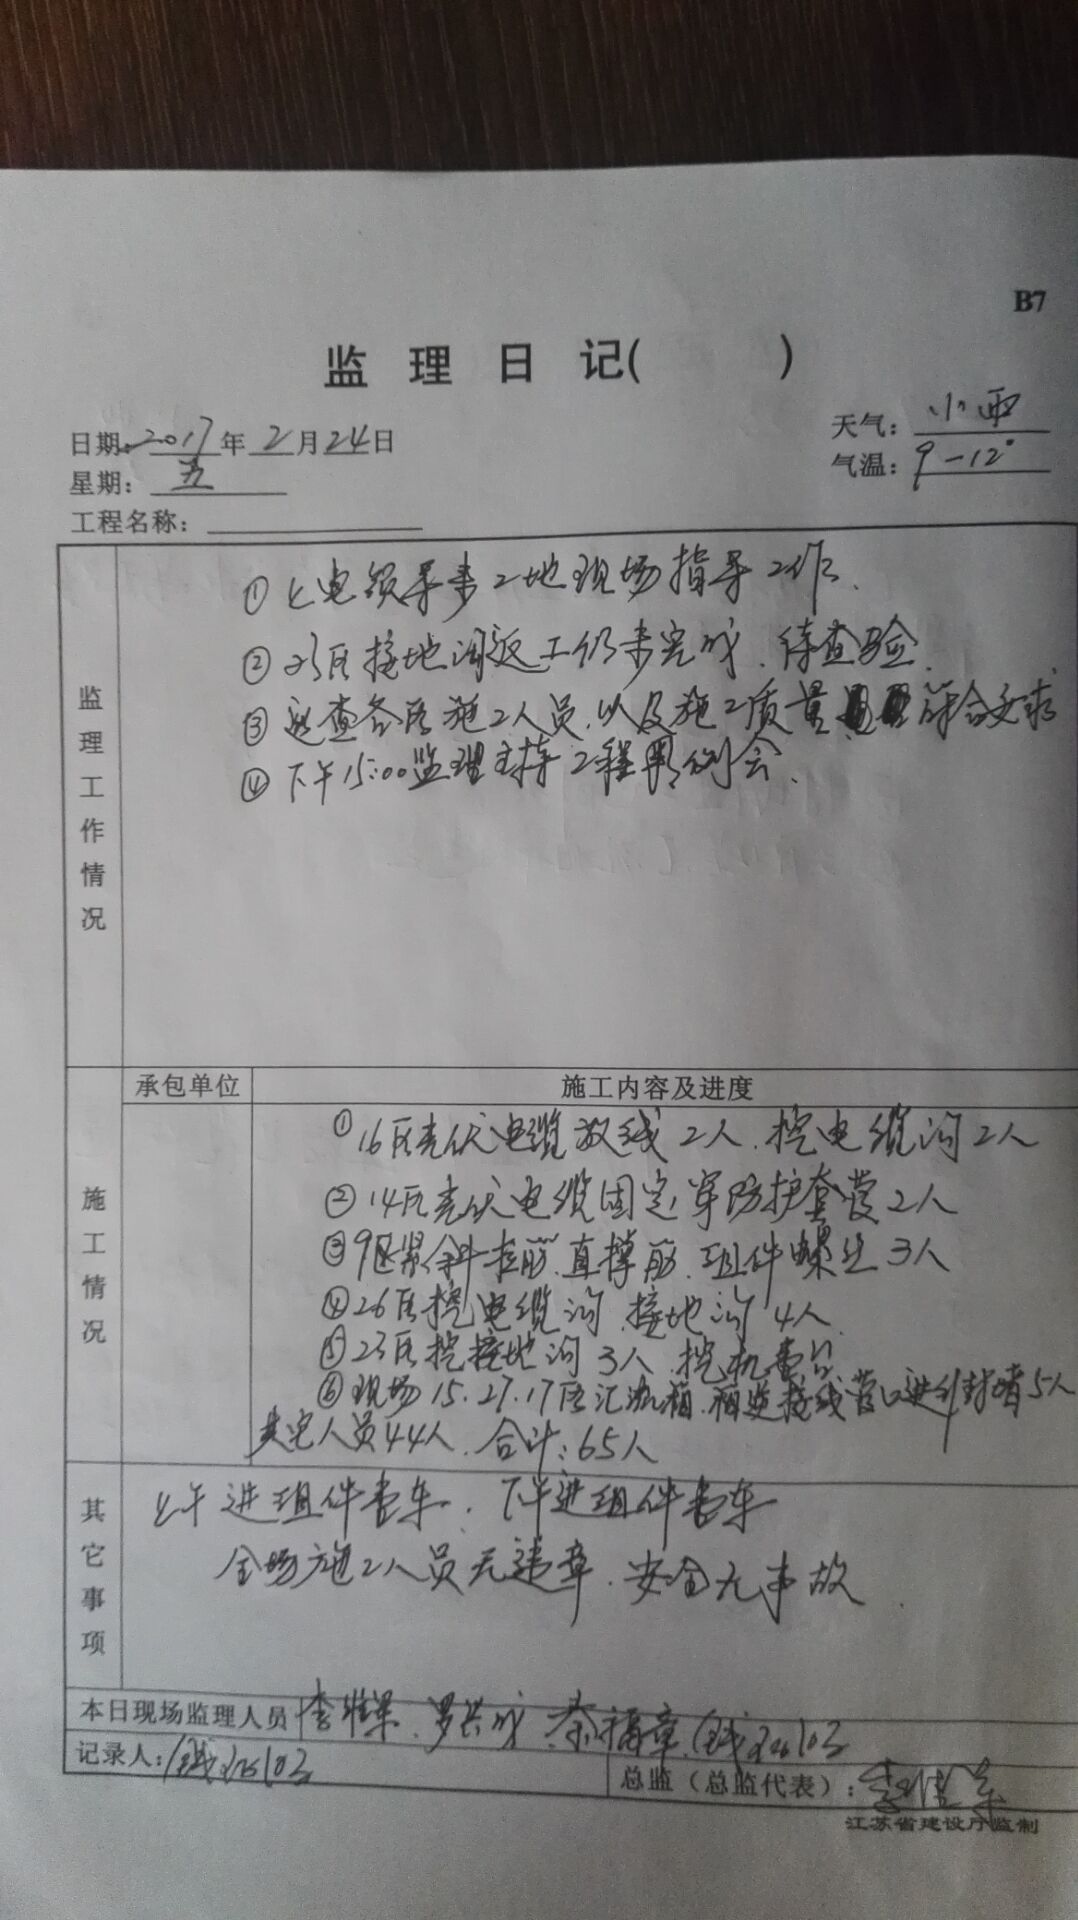 B7
监 理 日 记( )
日期: 2017年2月24日
天气: 小雨
星期: 五
气温: 9-12°
工程名称:
监理工作情况
①上电领导来工地现场指导工作.
②23区接地沟返工仍未完成.待查验.
③巡查各区施工人员.以及施工质量 符合要求
④下午15:00监理主持工程周例会.
承包单位
施工内容及进度
施工情况
①16区光伏电缆放线2人.挖电缆沟2人
②14区光伏电缆固定穿防护套管2人
③9区紧斜拉筋.直撑筋.组件螺丝3人
④26区挖电缆沟.接地沟4人
⑤23区挖接地沟3人.挖机壹台
⑥现场15.27.17区汇流箱. 接线管口进行封堵5人
人员44人.合计:65人
其它事项
上午进组件壹车.下午进组件壹车
全场施工人员无违章.安全无事故.
本日现场监理人员 罗兴成.秦福章.
记录人:
总监（总监代表）:
江苏省建设厅监制